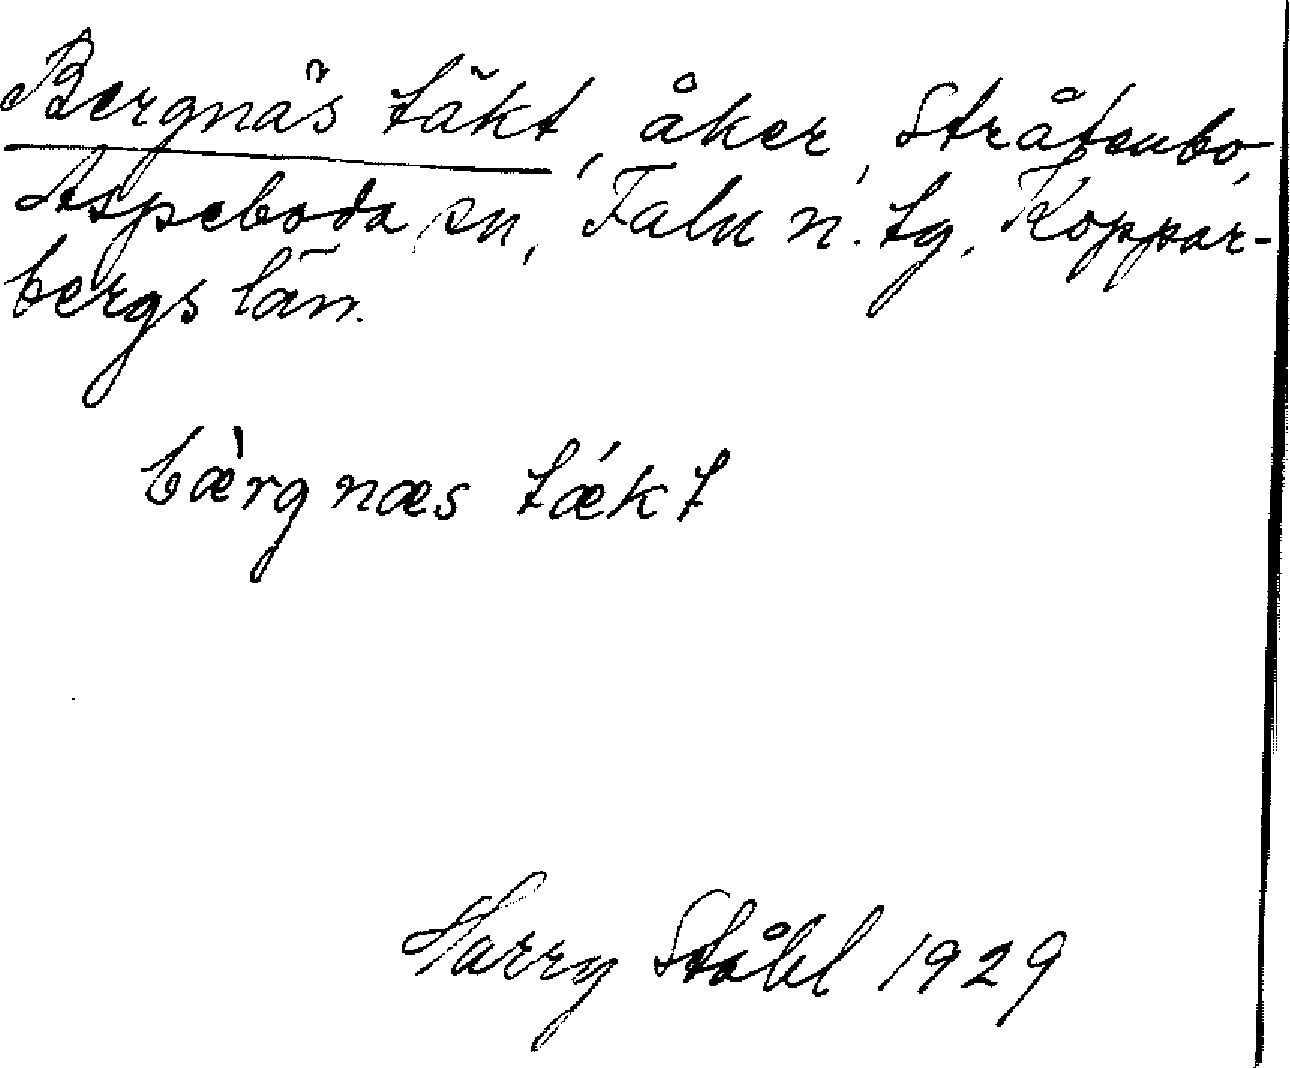 Bergnäs täkt, åker, Stråtenbo,
Aspeboda sn, Falu n. tg, Koppar-
bergs län.
bæ̀rgnæs tǽkt
Harry Ståhl 1929